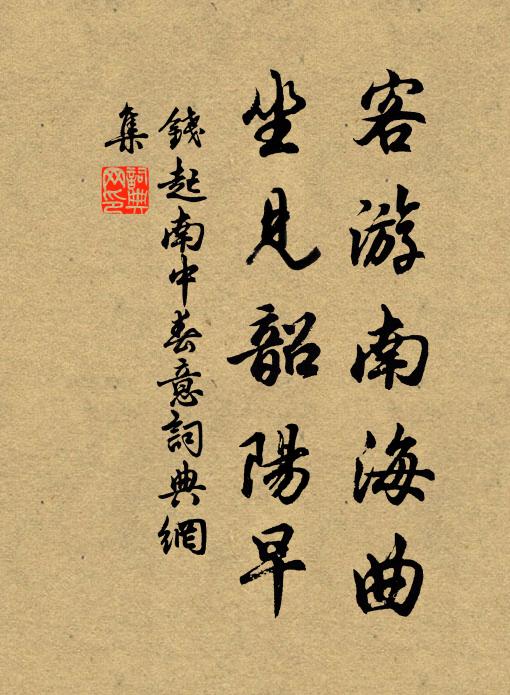 客游南海曲
坐見韶陽早
錢起南中春意詞典網
集
詞典
网印